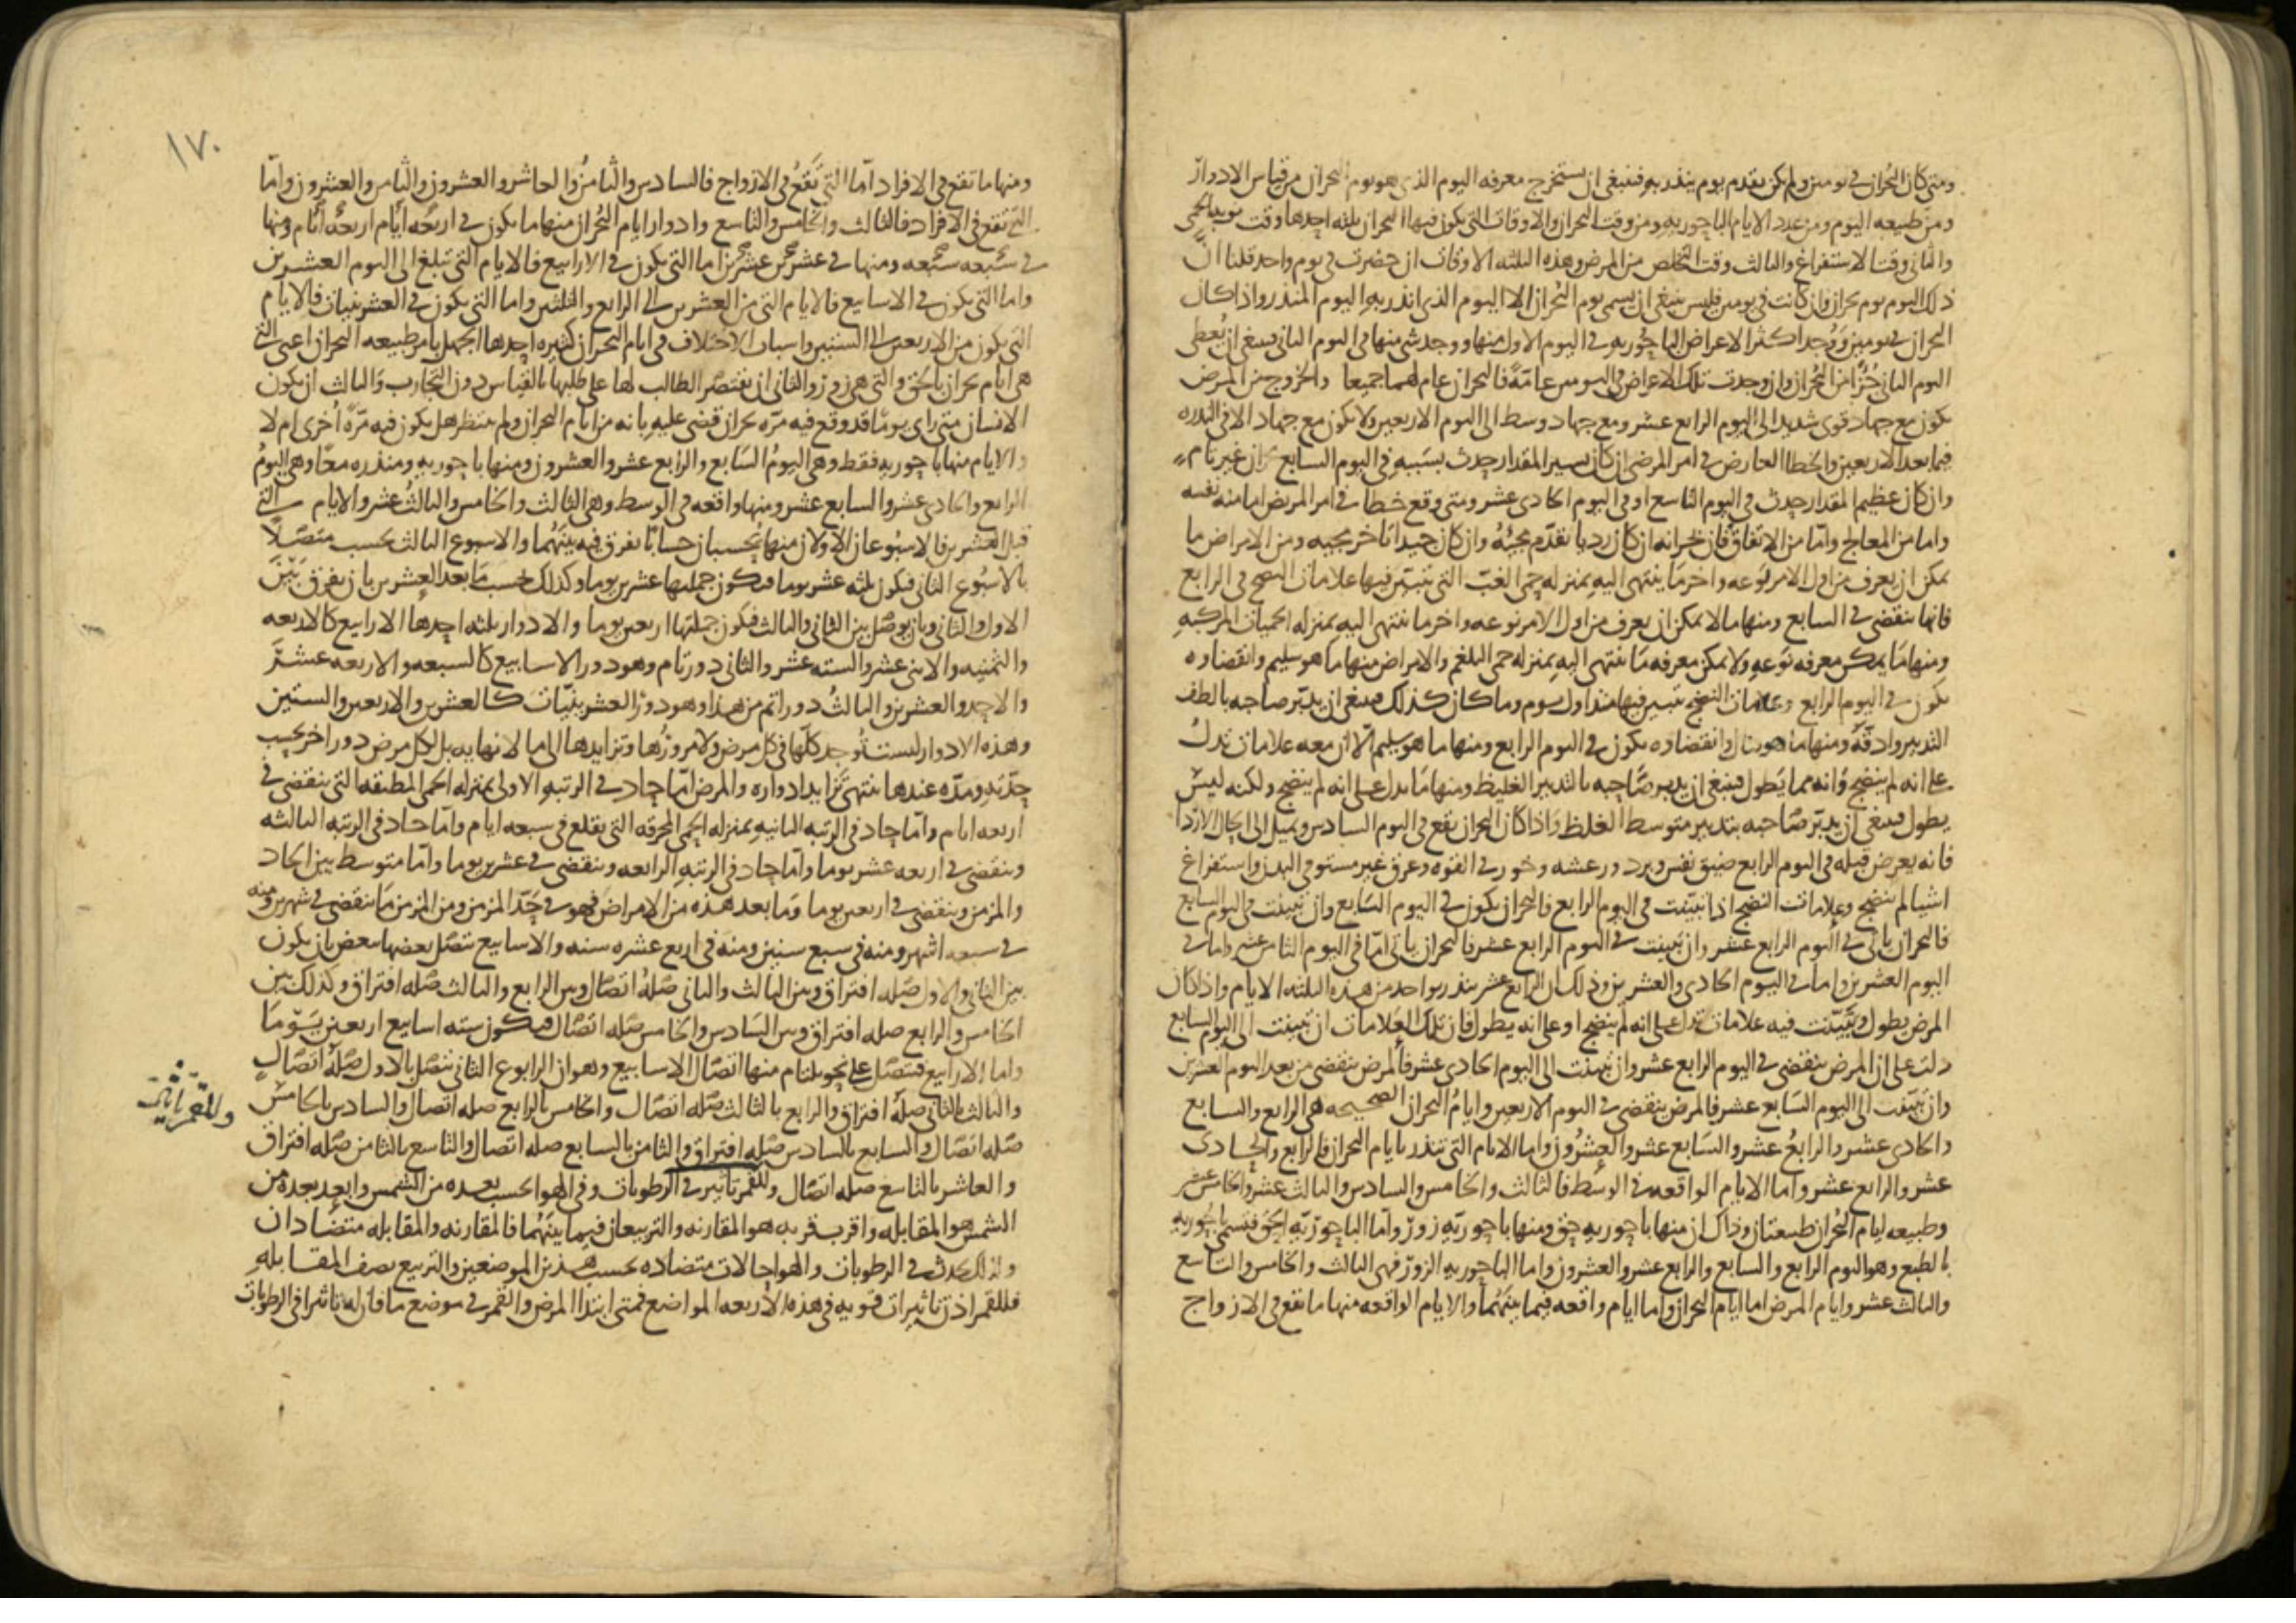 ومتى كان البحران في يومين ولم يكن تقدم يوم ينذر به فينبغي ان نستخرج معرفه اليوم الذي هو يوم البحران من قياس الادوار
ومن طبيعه اليوم ومن عدد الايام الباحوريه ومن وقت البحران والاوقات التي يكون فيها البحران ثلثه احدها وقت نوبه الحمى
والثاني وقت الاستفراغ والثالث وقت التخلص من المرض وهذه الثلثه الاوقات ان حضرت في يوم واحد قلنا ان
ذلك اليوم يوم بحران وان كانت في يومين فليس ينبغي ان يسمى يوم البحران الا اليوم الذي انذر به اليوم المنذر واذا كان
البحران في يومين ووجد اكثر الاعراض الباحوريه في اليوم الاول منها ووجد شي منها في اليوم الثاني فينبغي ان يعطى
اليوم الثاني جزءا من البحران وان وجدت تلك الاعراض في اليومين عامة فالبحران عام لهما جميعا والخروج من المرض
يكون مع جهاد قوي شديد الى اليوم الرابع عشر ومع جهاد وسط الى اليوم الاربعين ولا يكون مع جهاد الا في الندره
فيما بعد الاربعين والخطا العارض في امر المرضى ان كان يسير المقدار حدث بسببه في اليوم السابع بحران غير تام
وان كان عظيم المقدار حدث في اليوم التاسع او في اليوم الحادي عشر ومتى وقع خطا في امر المريض اما منه نفسه
واما من المعالج واما من الاتفاق فان خيرانه ان كان رديا تقدم مجيئه وان كان جيدا تاخر مجيه ومن الامراض ما
يمكن ان يعرف من اول الامر نوعه واخر ما ينتهي اليه بمنزله حمى الغب التي تتبين فيها علامات النضج في الرابع
فانها تنقضي في السابع ومنها ما لا يمكن ان يعرف من اول الامر نوعه واخر ما تنتهي اليه بمنزله الحميات المركبه
ومنها ما يمكن معرفه نوعه ولا يمكن معرفه ما تنتهي اليه بمنزله حمى البلغم والامراض منها ما هو سليم وانقضاوه
يكون في اليوم الرابع وعلامات النضج تتبين فيها منذ اول يوم وما كان كذلك فينبغي ان يدبر صاحبه بالطف
التدبير وادقه ومنها ما هو قتال وانقضاوه يكون في اليوم الرابع ومنها ما هو سليم الا ان معه علامات تدل
على انه لم ينضج وانه مما يطول فينبغي ان يدبر صاحبه بالتدبير الغليظ ومنها ما يدل على انه لم ينضج ولكنه ليس
يطول فينبغي ان يدبر صاحبه بتدبير متوسط الغلظ واذا كان البحران يقع في اليوم السادس ويميل الى الحال الاردا
فانه يعرض قبله في اليوم الرابع ضيق نفس وبرد ورعشه وخور في القوه وعرق غير مستو في البدن واستفراغ
اشيا لم ينضج وعلامات النضج اذا تبينت في اليوم الرابع فالبحران يكون في اليوم السابع وان تبينت في اليوم السابع
فالبحران ياتي في اليوم الرابع عشر وان تبينت في اليوم الرابع عشر فالبحران ياتي اما في اليوم الثامن عشر واما في
اليوم العشرين واما في اليوم الحادي والعشرين وذلك ان الرابع عشر ينذر بواحد من هذه الثلثه الايام واذا كان
المرض يطول وتبينت فيه علامات تدل على انه لم ينضج او على انه يطول فان تلك العلامات ان تبينت الى اليوم السابع
دلت على ان المرض ينقضي في اليوم الرابع عشر وان تبينت الى اليوم الحادي عشر فالمرض ينقضي من بعد اليوم العشرين
وان تبينت الى اليوم السابع عشر فالمرض ينقضي في اليوم الاربعين وايام البحران الصحيحه هي الرابع والسابع
والحادي عشر والرابع عشر والسابع عشر والعشرون واما الايام التي تنذر بايام البحران فالرابع والحادي
عشر والرابع عشر واما الايام الواقعه في الوسط فالثالث والخامس والسادس والثالث عشر والخامس عشر
وطبيعه ايام البحران طبيعتان وذاك ان منها باحوريه حق ومنها باحوريه زور واما الباحوريه الحق فتسمى باحوريه
بالطبع وهو اليوم الرابع والسابع والرابع عشر والعشرون واما الباحوريه الزور فهي الثالث والخامس والتاسع
والثالث عشر وايام المرض اما ايام البحران واما ايام واقعه فيما بينهما والايام الواقعه منها ما تقع في الازواج
١٧٠
ومنها ما تقع في الافراد اما التي تقع في الازواج فالسادس والثامن والعاشر والعشرون والثامن والعشرون واما
التي تقع في الافراد فالثالث والخامس والتاسع وادوار ايام البحران منها ما يكون في اربعه ايام اربعه ايام ومنها
في سبعه سبعه ومنها في عشرين عشرين اما التي يكون في الارابيع فالايام التي تبلغ الى اليوم العشرين
واما التي يكون في الاسابيع فالايام التي من العشرين الى الرابع والثلثين واما التي يكون في العشرينيات فالايام
التي يكون من الاربعين الى الستين واسباب الاختلاف في ايام البحران كثيره احدها الجهل بامر طبيعه البحران اعني التي
هي ايام بحران بالحق والتي هي زور والثاني ان يقتصر الطالب لها على طلبها بالقياس دون التجارب والثالث ان يكون
الانسان متى راى يوما قد وقع فيه مره بحران قضى عليه بانه من ايام البحران ولم ينتظر هل يكون فيه مرة اخرى ام لا
والايام منها باحوريه فقط وهي اليوم السابع والرابع عشر والعشرون ومنها باحوريه ومنذره معا وهي اليوم
الرابع والحادي عشر والسابع عشر ومنها واقعه في الوسط وهي الثالث والخامس والثالث عشر والايام التي
قبل العشرين فالاسبوعان الاولان منها يحسبان حسابا يفرق فيه بينهما والاسبوع الثالث يحسب متصلا
بالاسبوع الثاني فيكون ثلثه عشر يوما فيكون جملتها عشرين يوما وكذلك يحسب ما بعد العشرين بان يفرق بين
الاول والثاني وبان يوصل بين الثاني والثالث فيكون جملتها اربعين يوما والادوار ثلثه احدها الارابيع كالاربعه
والثمنيه والاثني عشر والسته عشر والثاني دور تام وهو دور الاسابيع كالسبعه والاربعه عشر
والاحد والعشرين والثالث دور اتم من هذا وهو دور العشرينيات كالعشرين والاربعين والستين
وهذه الادوار ليست توجد كلها في كل مرض ولا مرورها وتزايدها الى ما لا نهايه بل لكل مرض دور اخر بحسب
حدته ومدة عندها ينتهي تزايد ادواره والمرض اما حاد في الرتبه الاولى بمنزله الحمى المطبقه التي تنقضي في
اربعه ايام واما حاد في الرتبه الثانيه بمنزله الحمى المحرقه التي تقلع في سبعه ايام واما حاد في الرتبه الثالثه
وينقضي في اربعه عشر يوما واما حاد في الرتبه الرابعه وينقضي في عشرين يوما واما متوسط بين الحاد
والمزمن وينقضي في اربعين يوما وما بعد هذه من الامراض فهو في حد المزمن ومن المزمن ما ينقضي في شهرين ومنه
في سبعه اشهر ومنه في سبع سنين ومنه في اربع عشره سنه والاسابيع تتصل بعضها ببعض بان يكون
بين الثاني والاول صله افتراق وبين الثالث والثاني صله اتصال وبين الرابع والثالث صله افتراق وكذلك بين
الخامس والرابع صله افتراق وبين السادس والخامس صله اتصال فيكون سته اسابيع اربعين يوما
واما الارابيع فتتصل على نحو يلتام منها اتصال الاسابيع وهو ان الرابوع الثاني يتصل بالاول صله اتصال
والثالث بالثاني صله افتراق والرابع بالثالث صله اتصال والخامس بالرابع صله اتصال والسادس بالخامس
صله اتصال والسابع بالسادس صله افتراق والثامن بالسابع صله اتصال والتاسع بالثامن صله افتراق
والعاشر بالتاسع صله اتصال وللقمر تاثير في الرطوبات وفي الهوا بحسب بعده من الشمس وابعد بعده من
الشمس هو المقابله واقرب قربه هو المقارنه والتربيعان فيما بينهما فالمقارنه والمقابله متضادان
ولذلك يحدث في الرطوبات والهوا حالات متضاده بحسب هذين الموضعين والتربيع نصف المقابله
فللقمر اذن تاثيرات قويه في هذه الاربعه المواضع فمتى ابتدا المرض والقمر في موضع ما فان له تاثيرا في الرطوبات
وللقمر تاثير